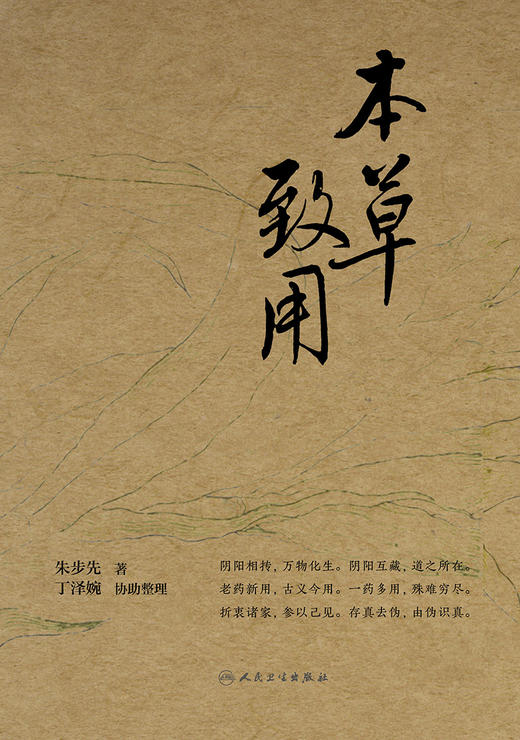 本草
致用
朱步先 著
丁泽婉 协助整理
阴阳相抟，万物化生。阴阳互藏，道之所在。
老药新用，古义今用。一药多用，殊难穷尽。
折衷诸家，参以己见。存真去伪，由伪识真。
人民卫生出版社